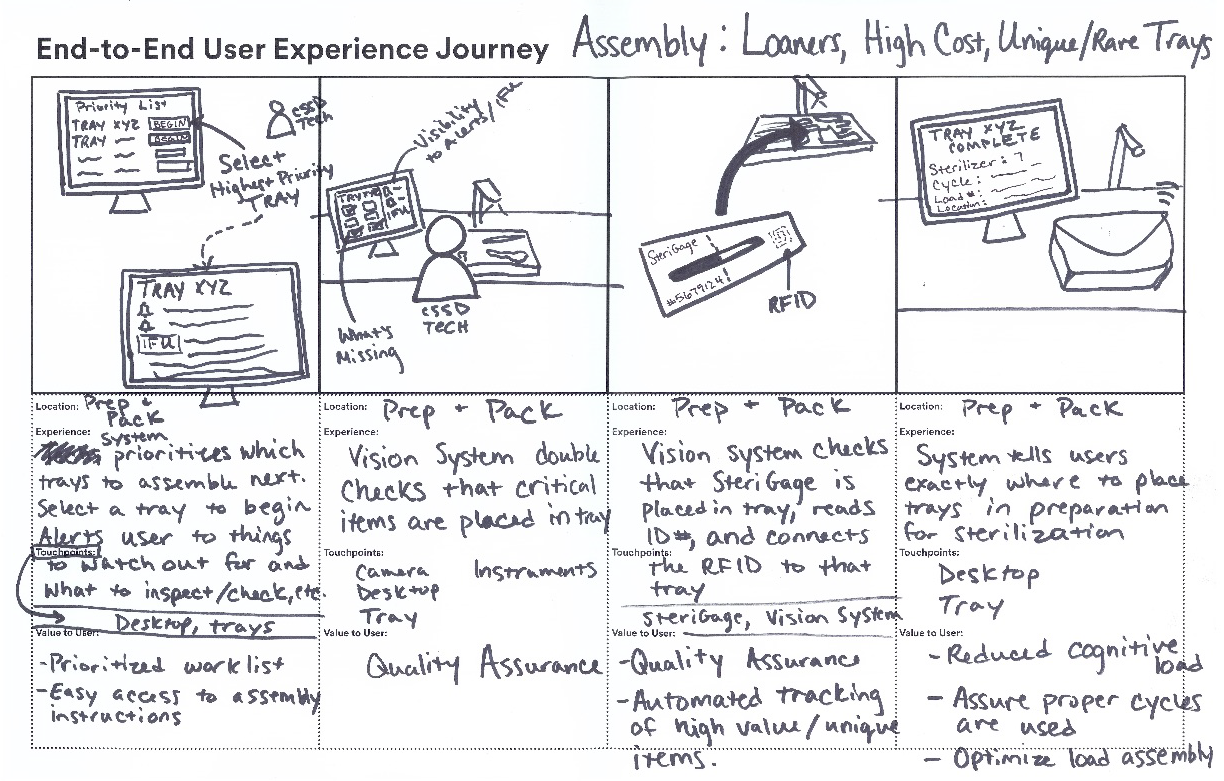 End-to-End User Experience Journey
Assembly: Loaners, High Cost, Unique/Rare Trays
Priority List
TRAY XYZ BEGIN
TRAY BEGIN
CSSD
TECH
Select
Highest Priority
TRAY
TRAY XYZ
IFU
Visibility
to Alerts/IFU
TRAY
IFU
What's
Missing
CSSD
TECH
SteriGage
#5679124!
RFID
TRAY XYZ
COMPLETE
Sterilizer: 7
Cycle:
Load #:
Location:
Location: Prep +
Pack
Experience: System
prioritizes which
trays to assemble next.
Select a tray to begin
Alerts user to things
Touchpoints:
to watch out for and
what to inspect/check, etc.
Desktop, trays
Value to User:
-Prioritized work list
-Easy access to assembly
instructions
Location: Prep + Pack
Experience:
Vision System double
checks that critical
items are placed in tray
Touchpoints:
Camera Instruments
Desktop
Tray
Value to User:
Quality Assurance
Location: Prep + Pack
Experience:
Vision system checks
that SteriGage is
placed in tray, reads
ID#, and connects
Touchpoints:
the RFID to that
tray
SteriGage, Vision System
Value to User:
-Quality Assurance
-Automated tracking
of high value/unique
items.
Location: Prep + Pack
Experience:
System tells users
exactly where to place
trays in preparation
for sterilization
Touchpoints:
Desktop
Tray
Value to User:
-Reduced cognitive
load
- Assure proper cycles
are used
- Optimize load assembly